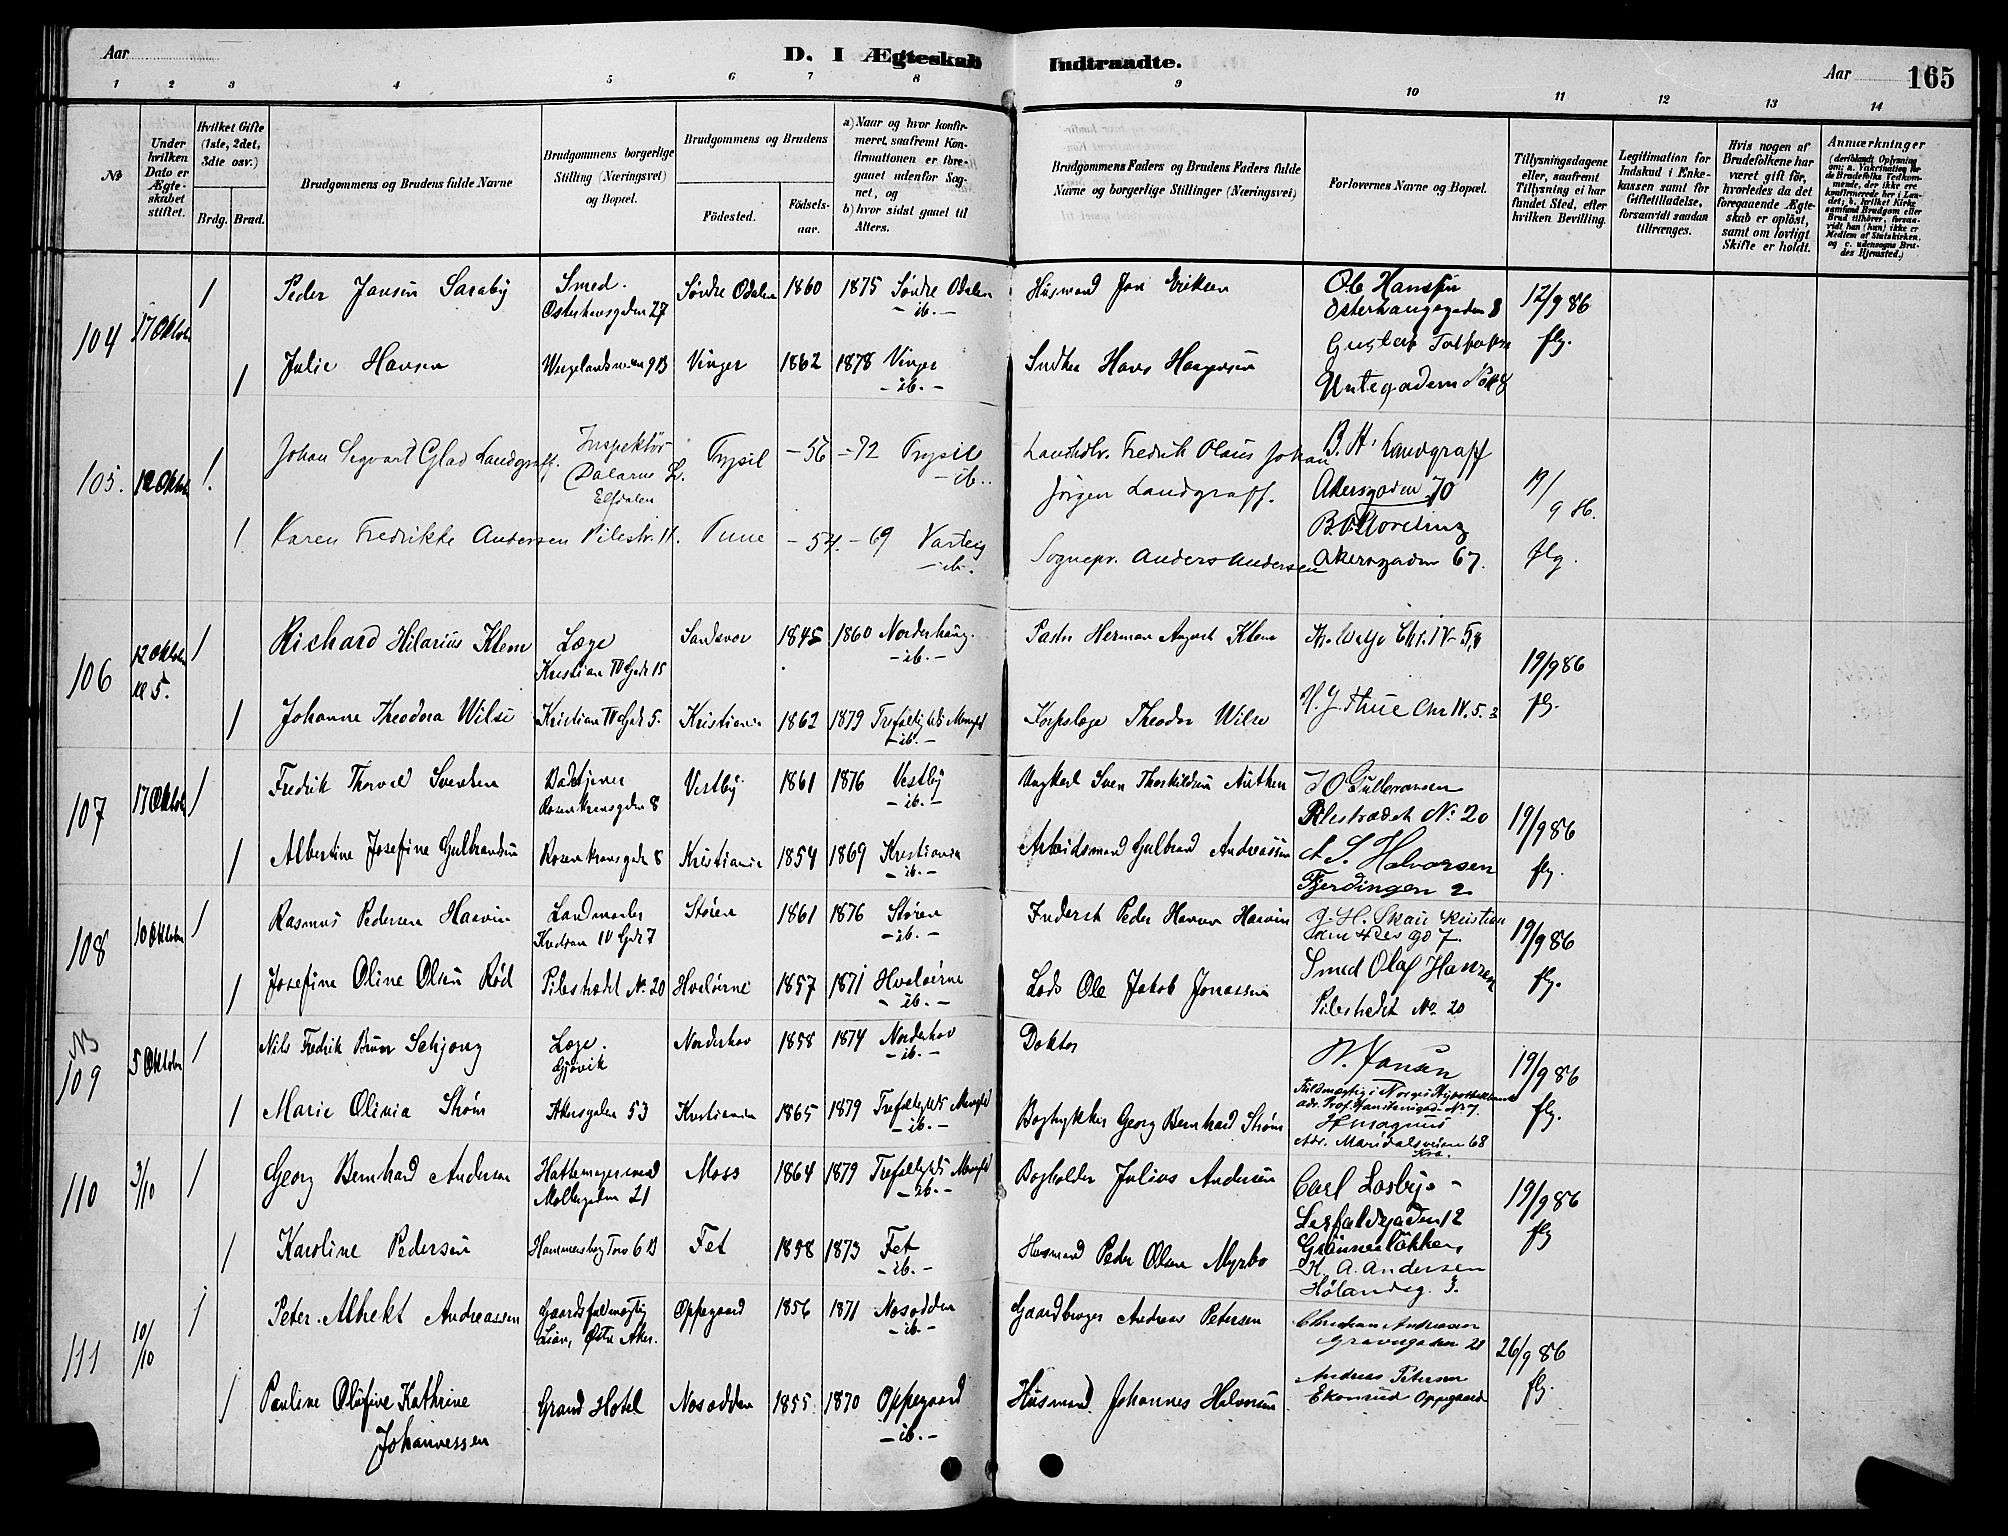 Aar
D. I Ægteskab Indtraadte.
Aar
165
1 2 3 4 5 6 7 8 9 10 11 12 13 14
№
Under hvilken Dato er Ægteskabet stiftet.
Hvilket Gifte (1ste, 2det, 3die osv.)
Brdg. Brud.
Brudgommens og Brudens fulde Navne
Brudgommens borgerlige Stilling (Næringsvei) og Bopæl.
Brudgommens og Brudens
Fødested.
Fødselsaar.
a) Naar og hvor konfirmeret, saafremt Konfirmationen er foregaaet udenfor Sognet, og
b) hvor sidst gaaet til Alters.
Brudgommens Faders og Brudens Faders fulde Navne og borgerlige Stillinger (Næringsvei)
Forlovernes Navne og Bopæl.
Tillysningsdagene eller, saafremt Tillysning ei har fundet Sted, efter hvilken Bevilling.
Legitimation for Indskud i Enkekassen samt for Giftetilladelse, forsaavidt saadan tiltrænges.
Hvis nogen af Brudefolkene har været gift før, hvorledes da det foregaaende Ægteskab er opløst, samt om lovligt Skifte er holdt.
Anmærkninger
(deriblandt Oplysning om: a. Vakcination for de Brudefolks Vedkommende, der ikke ere konfirmerede her i Landet; b. hvilket Kirkesamfund Brudgom eller Brud tilhører, forsaavidt han (hun) ikke er Medlem af Statskirken, og c. udensogns Brudes Hjemsted.)
104 17 Oktober 1 Peder Jansen Saraby Smed. Søndre Odalen 1860 1875 Søndre Odalen Husmand Jon Eriksen Ole Hansen 12/9 86
Osterhausgaden 27 - ib. - Osterhausgaden 8
1 Julie Hansen Wergelandsveien 9B Vinger 1862 1878 Vinger Hans flg.
- ib. -
105. 12 Oktob 1. Johan Sigvart Glad Landgraff. Inspektør Trysil - 56 - 72 Trysil Fredrik Olaus Johan B. H. Landgraff
Dalarne - ib. - Jørgen Landgraff. Akersgaden 70 19/9 86.
Elfdalen
1. Karen Fredrikke Andersen Pilestr. 11. Tune - 54. - 69 Varteig Sognepr. Anders Andersen Akersgaden 67. flg.
- ib.
106 12 Oktober kl 5. 1 Richard Hilarius Klem Læge Sandsvær 1845 1860 Norderhaug. Pastor Herman August Klem Chr. IV 19/9 86
Kristian IV Gade 15 - ib. -
1 Johanne Theodora Wilse Kristian IV Gade 5. Kristiania 1862 1879 Trefoldigheds Menighed Korpslæge Theodor Wilse H. J. Thue Chr IV. 5. flg.
- ib. -
107 17 Oktober 1 Fredrik Thorvald Svendsen Vestby 1861 1876 Vestby Ungkarl Sven Thorkildsen J O Gulbransen
Rosenkransgaden 8 - ib. - Pilestrædet No 20 19/9 86
1 Albertine Josefine Gulbrandsen Rosenkransgade 8 Kristiania 1854 1869 Kristiania Arbeidsmand Gulbrand Andreassen A S. Halvorsen flg.
- ib. - Fjerdingen 2
108 10 Oktober 1 Rasmus Pedersen Haavin Støren 1861 1876 Støren Inderst Peder Hansen Haavin J. H. Skau Kristian 19/9 86
Kristian IV Gade 7 - ib. -
1 Josefine Oline Olsen Rød Pilestrædet No 20 Hvaløerne 1857 1871 Hvaløerne Lods Ole Jakob Jonassen Smed Olaf Hansen flg.
- ib. - Pilestrædet No 20
NB
109 5 Oktober 1 Nils Fredrik Brun Schjong Læge. Norderhov 1858 1874 Norderhov Doktor W. Jansen 19/9 86
Gjøvik - ib. -
1 Marie Olivia Strøm Akersgaden 53 Kristiania 1865 1879 Trefoldigheds Menighed Bogtrykker Georg Bernhard Strøm H Magnus flg.
- ib. - Adr. Maridalsveien 68
Kra.
110 3/10 1 Georg Bernhard Andersen Hattemagersvend Moss 1864 1879 Trefoldigheds Menighed Bogholder Julius Andersen Carl Losby 19/9 86
Møllergaden 21 - ib. - 12
1 Karoline Pedersen Hammersborg Torv 6B Fet 1858 1873 Fet Husmand Peder Olsen Myrbo Grünnerløkken flg
- ib. - K. A. Andersen
Hølandsg. 3.
111 10/10 1 Peter Albrekt Andreassen Gaardsfuldmægtig Oppegaard 1856 1871 Nesodden Gaardbruger Andreas Petersen Christian Andreassen
Lian, Østre Aker. - ib. - Grændsgaden 21 26/9 86
1 Pauline Olufine Kathrine Grand Hotel Nesodden 1855 1870 Oppegaard Husmand Johannes Halvorsen Andreas Petersen flg.
Johannessen - ib. - Ekornrud Oppegaard